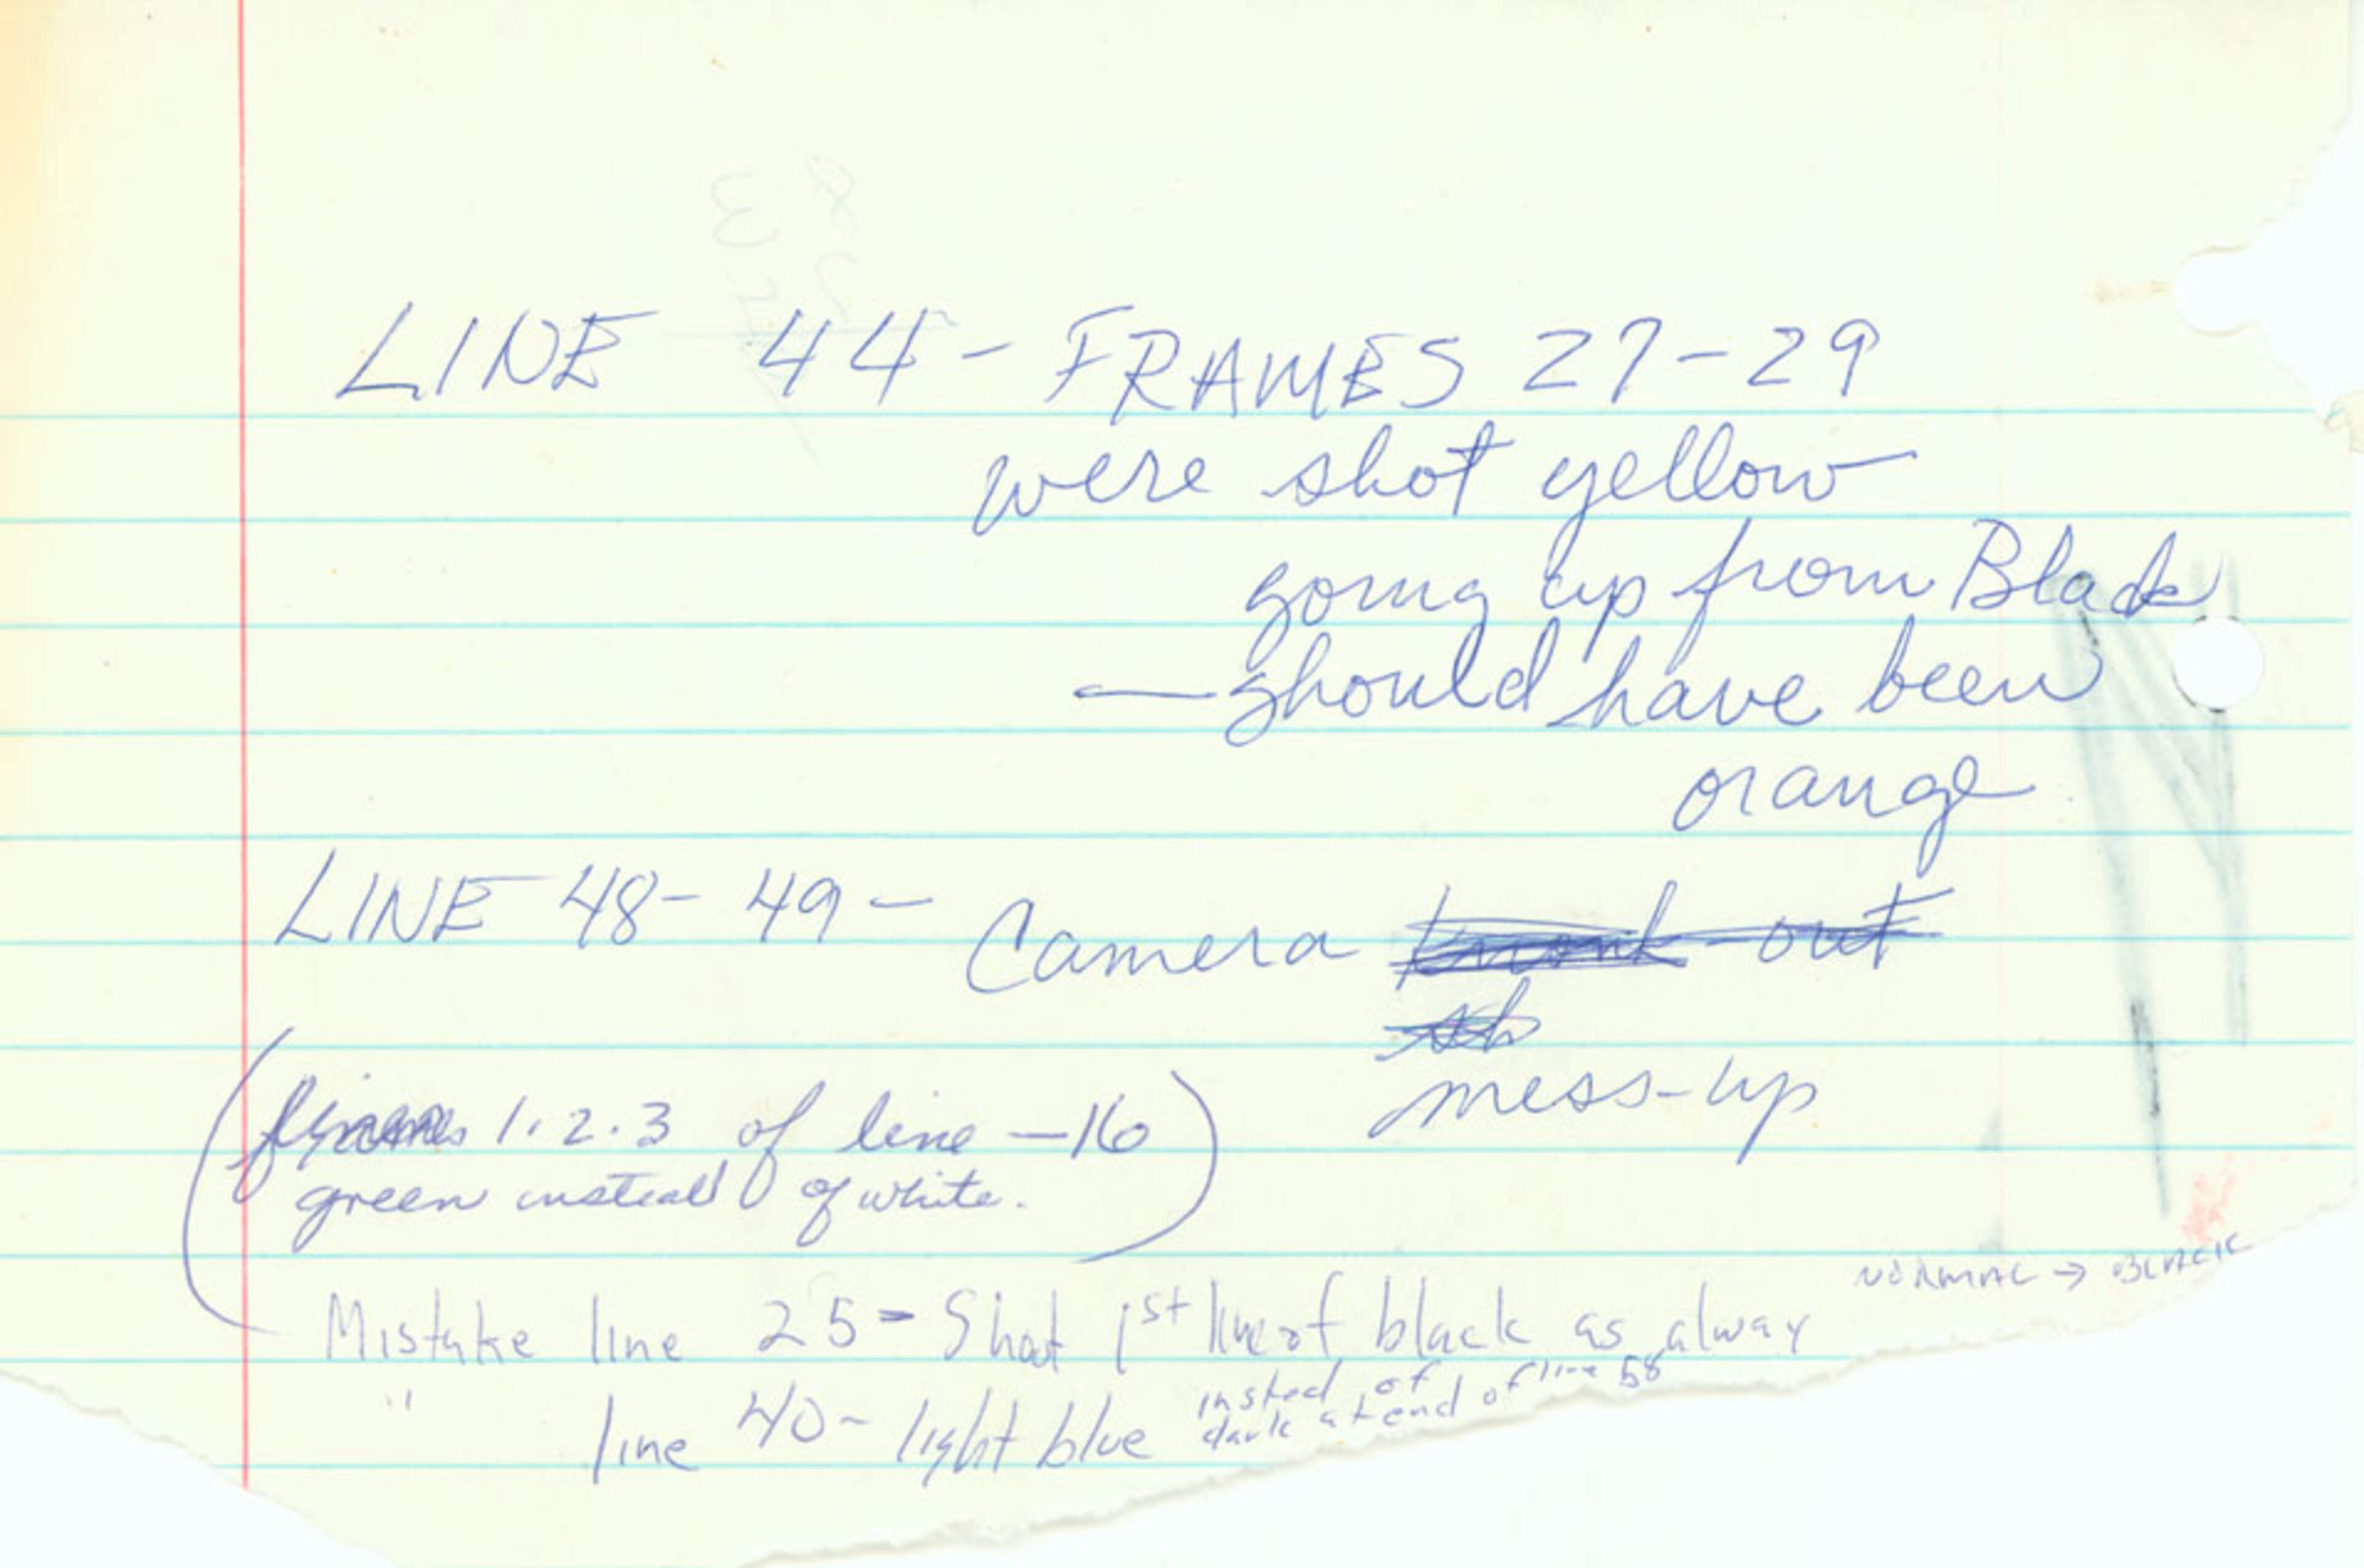 LINE 44 - FRAMES 27-29
were shot yellow
going up from Black
— should have been
orange
LINE 48-49 - Camera out
mess-up
(frames 1.2.3 of line —16
green instead of white.)
NORMAL → BLACK
Mistake line 25 - Shot 1st line of black as alway
" line 40 - light blue insted of
dark at end of line 58